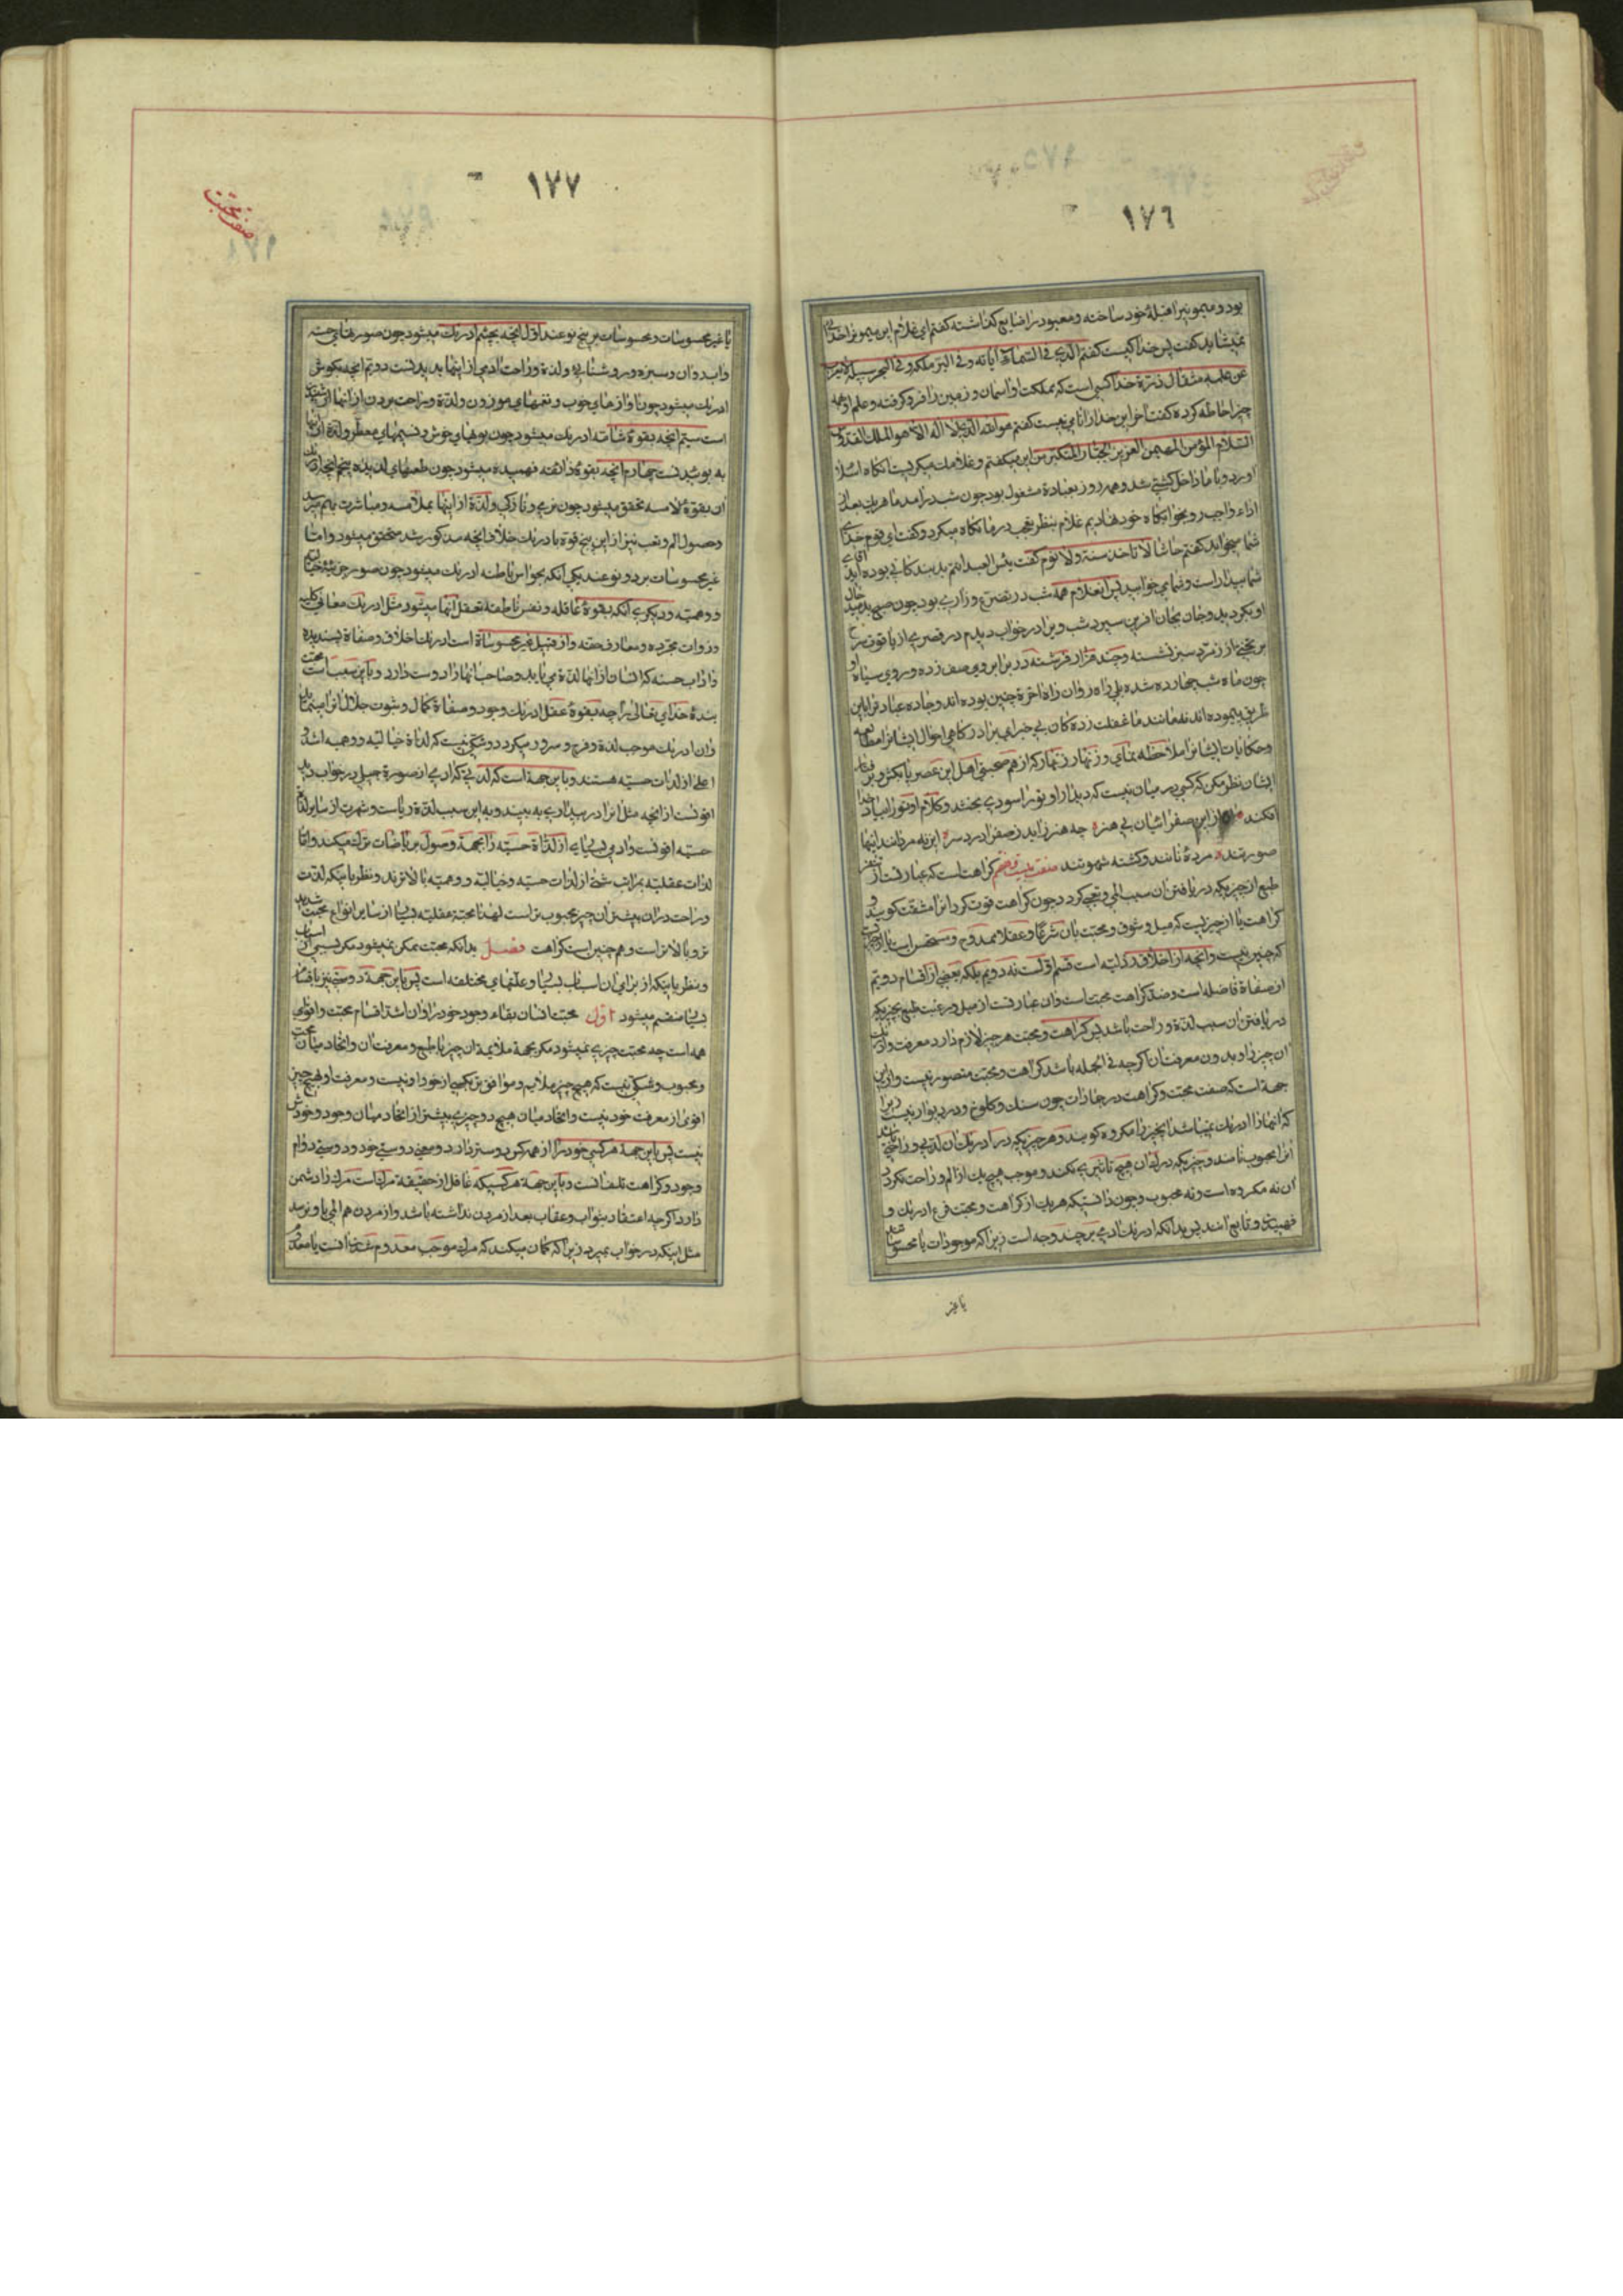 ١٧٦
بود و میمونیرا قبلهٔ خود ساخته و معبود را ضایع کذاشته کفتم ای غلام این میمونرا خدائی
نمیشاید کفت پس خدا کیست کفتم الذی فی السماء آیاته و فی البر ملکه و فی البحر سبیله لا یعزب
عن علمه مثقال ذرة خدا کسی است که مملکت او آسمان و زمین را فرو کرفته و علم او همه
چیز احاطه کرده کفت آخر این خدا را نامی نیست کفتم هو الله الذی لا اله الا هو الملک القدوس
السلام المؤمن المهیمن العزیز الجبار المتکبر من این میکفتم و غلامک میکریست آنکاه اسلام
آورد و با ما داخل کشتی شد و همه روز بعبادة مشغول بود چون شب در آمد ما هریک بعد از
اداء واجب رو بخوابکاه خود نهادیم غلام بنظر تعجب در ما نکاه میکرد و کفت ای قوم خدای
شما میخوابد کفتم حاشا لا تاخذه سنة و لا نوم کفت بئس العبد انتم بد بندکانی بوده اید آقای
شما بیدار است و شما می خوابید پس آن غلام همه شب در تضرع و زاری بود چون صبح بدمید حال
او بکردید و جان بجان آفرین سپرد شب ویرا در خواب دیدم در قصری از یاقوت سرخ
بر تختی از زمرد سبز نشسته و چند هزار فرشته در برابر وی صف زده و روی سیاه او
چون ماه شب چهارده شده بلی راه روان راه آخرة چنین بوده اند و جاده عبادترا باین
طریق پیموده اند نه مانند ما غفلت زده کان بی خبر ای برادر کاهی احوال ایشانرا مطالعه
و حکایات ایشانرا ملاحظه نمای و زنهار زنهار که از هم صحبتی اهل این عصر بامکر و بر
ایشان نظر مکن که کسی در میان نیست که دیدار او تورا سودی بخشد و کلام او تورا بیاد خدا
افکند از این صفرائیان بی هنر چه هنر زاید ز صفرا درد سر این نه مردانند اینها
صورتند مردهٔ نانند و کشته شهوتند صفت بیست و پنجم کراهت است که عبارتست از تنفر
طبع از چیزیکه دریافتن آن سبب الم و تعب کردد و چون کراهت قوت کرد آنرا مقت کویند و
کراهت یا از چیزیست که میل و شوق و محبت بآن شرعا و عقلا ممدوح و مستحسن است یا از چیزیست
که چنین نیست و آنچه از اخلاق رذیله است قسم اول است نه دویم بلکه بعضی از اقسام دویم
از صفاة فاضله است و ضد کراهت محبت است و آن عبارتست از میل و رغبت طبع بچیزیکه
دریافتن آن سبب لذة و راحت باشد پس کراهت و محبت هر چیز لازم دارد معرفت و ادراک
آن چیز را و بدون معرفت آن اکرچه فی الجمله باشد کراهت و محبت متصور نیست و از این
جهة است که صفت محبت و کراهت در جمادات چون سنک و کلوخ و در و دیوار نیست زیرا
که آنها را ادراک نمیباشد آنچیز را مکروه کویند و هر چیزیکه در ادراک آن لذتی و راحتی باشد
آنرا محبوب نامند و چیزیکه ادراک آن هیچ تاثیری نکند و موجب هیچ یک از الم و راحت نکردد
آن نه مکروه است و نه محبوب و چون دانستیکه هر یک از کراهت و محبت فرع ادراک و
فهمیدن و تابع آنند پس بدانکه ادراک آدمی بر چند وجه است زیرا که موجودات یا محسوساتند
یا غیر
١٧٧
صفت محبت
یا غیر محسوسات و محسوسات بر پنج نوعند اول آنچه بچشم ادراک میشود چون صورتهای حسنه
و آب روان و سبزه و روشنایی و لذة و راحت آدمی از اینها بدیدنست دویم آنچه بکوش
ادراک میشود چون آوازهای خوب و نغمهای موزون و لذة و راحت بردن از آنها از شنیدن
است سیم آنچه بقوهٔ شامّه ادراک میشود چون بویهای خوش و نسیمهای معطر و لذة از اینها
به بوئیدنست چهارم آنچه بقوهٔ ذائقه فهمیده میشود چون طعمهای لذیذه پنجم آنچه ادراک
آن بقوهٔ لامسه متحقق میشود چون نرمی و نازکی و لذة از اینها بملامسه و مباشرت بهم میرسد
و حصول الم و تعب نیز از این پنج قوة بادراک خلاف آنچه مذکور شد متحقق میشود و اما
غیر محسوسات بر دو نوعند یکی آنکه بحواس باطنه ادراک میشود چون صور جزئیه خیالیه
و وهمیه و دیکری آنکه بقوهٔ عاقله و نفس ناطقه تعقل آنها میشود مثل ادراک معانی کلیه
و ذوات مجرده و معارف حقه و از قبیل غیر محسوساة است ادراک اخلاق و صفاة پسندیده
و آداب حسنه که انسان از آنها لذة می یابد و صاحب آنها را دوست دارد و باین سبب است محبت
بندهٔ خدای تعالی را چه بقوهٔ عقل ادراک وجود و صفاة کمال و ثبوت جلال او را مینماید
و آن ادراک موجب لذة و فرح و سرور میکردد و شکی نیست که لذاة خیالیه و وهمیه اشد و
اعلی از لذات حسیه هستند و باین جهة است که لذتی که آدمی از صورة جمیل در خواب بیند
اقویست از آنچه مثل آنرا در بیداری به بیند و به این سبب لذة ریاست و شهرت از سایر لذاة
حسیه اقویست و آدمی بسیاری از لذاة حسیه را بجهة وصول بریاضات ترک میکند و اما
لذات عقلیه بمراتب شتی از لذات حسیه و خیالیه و وهمیه بالاترند و نظر باینکه لذت
و راحت در آن بیشتر آن چیز محبوب تر است لهذا محبة عقلیه بسیار از سایر انواع محبت شدید
تر و بالاتر است و همچنین است کراهت فصل بدانکه محبت ممکن نمیشود مکر بسببی از اسباب
و نظر باینکه از برای آن اسباب بسیار و علتهای مختلفه است پس باین جهة دوستی نیز باقسام
بسیار منقسم میشود اول محبت انسان بقاء وجود خود را و آن اشد اقسام محبت و اقوای
همه است چه محبت چیزی نمیشود مکر بجهة ملایمة آن چیز با طبع و معرفت آن و اتحاد میان محب
و محبوب و شکی نیست که هیچ چیز ملایم و موافق تر بکسی از خود او نیست و معرفت او بهیچ چیز
اقوی از معرفت خود نیست و اتحاد میان هیچ دو چیزی بیشتر از اتحاد میان وجود و خودش
نیست پس باین جهة هر کسی خود را از همه کس دوستر دارد و معنی دوستی خود دوستی دوام
وجود و کراهت تلف آنست و باین جهة هر کسیکه غافل از حقیقة مرک است مرک را دشمن
دارد اکرچه اعتقاد بثواب و عقاب بعد از مردن نداشته باشد و از مردن هم المی باو نرسد
مثل اینکه در خواب بمیرد زیرا که کمان میکند که مرک موجب معدوم شدن آنست یا معدوم